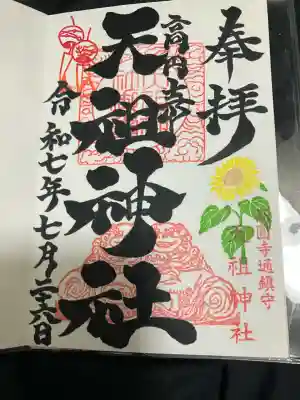 奉拝
高円寺
天祖神社
令和七年七月二六日
高円寺通鎮守
天祖神社